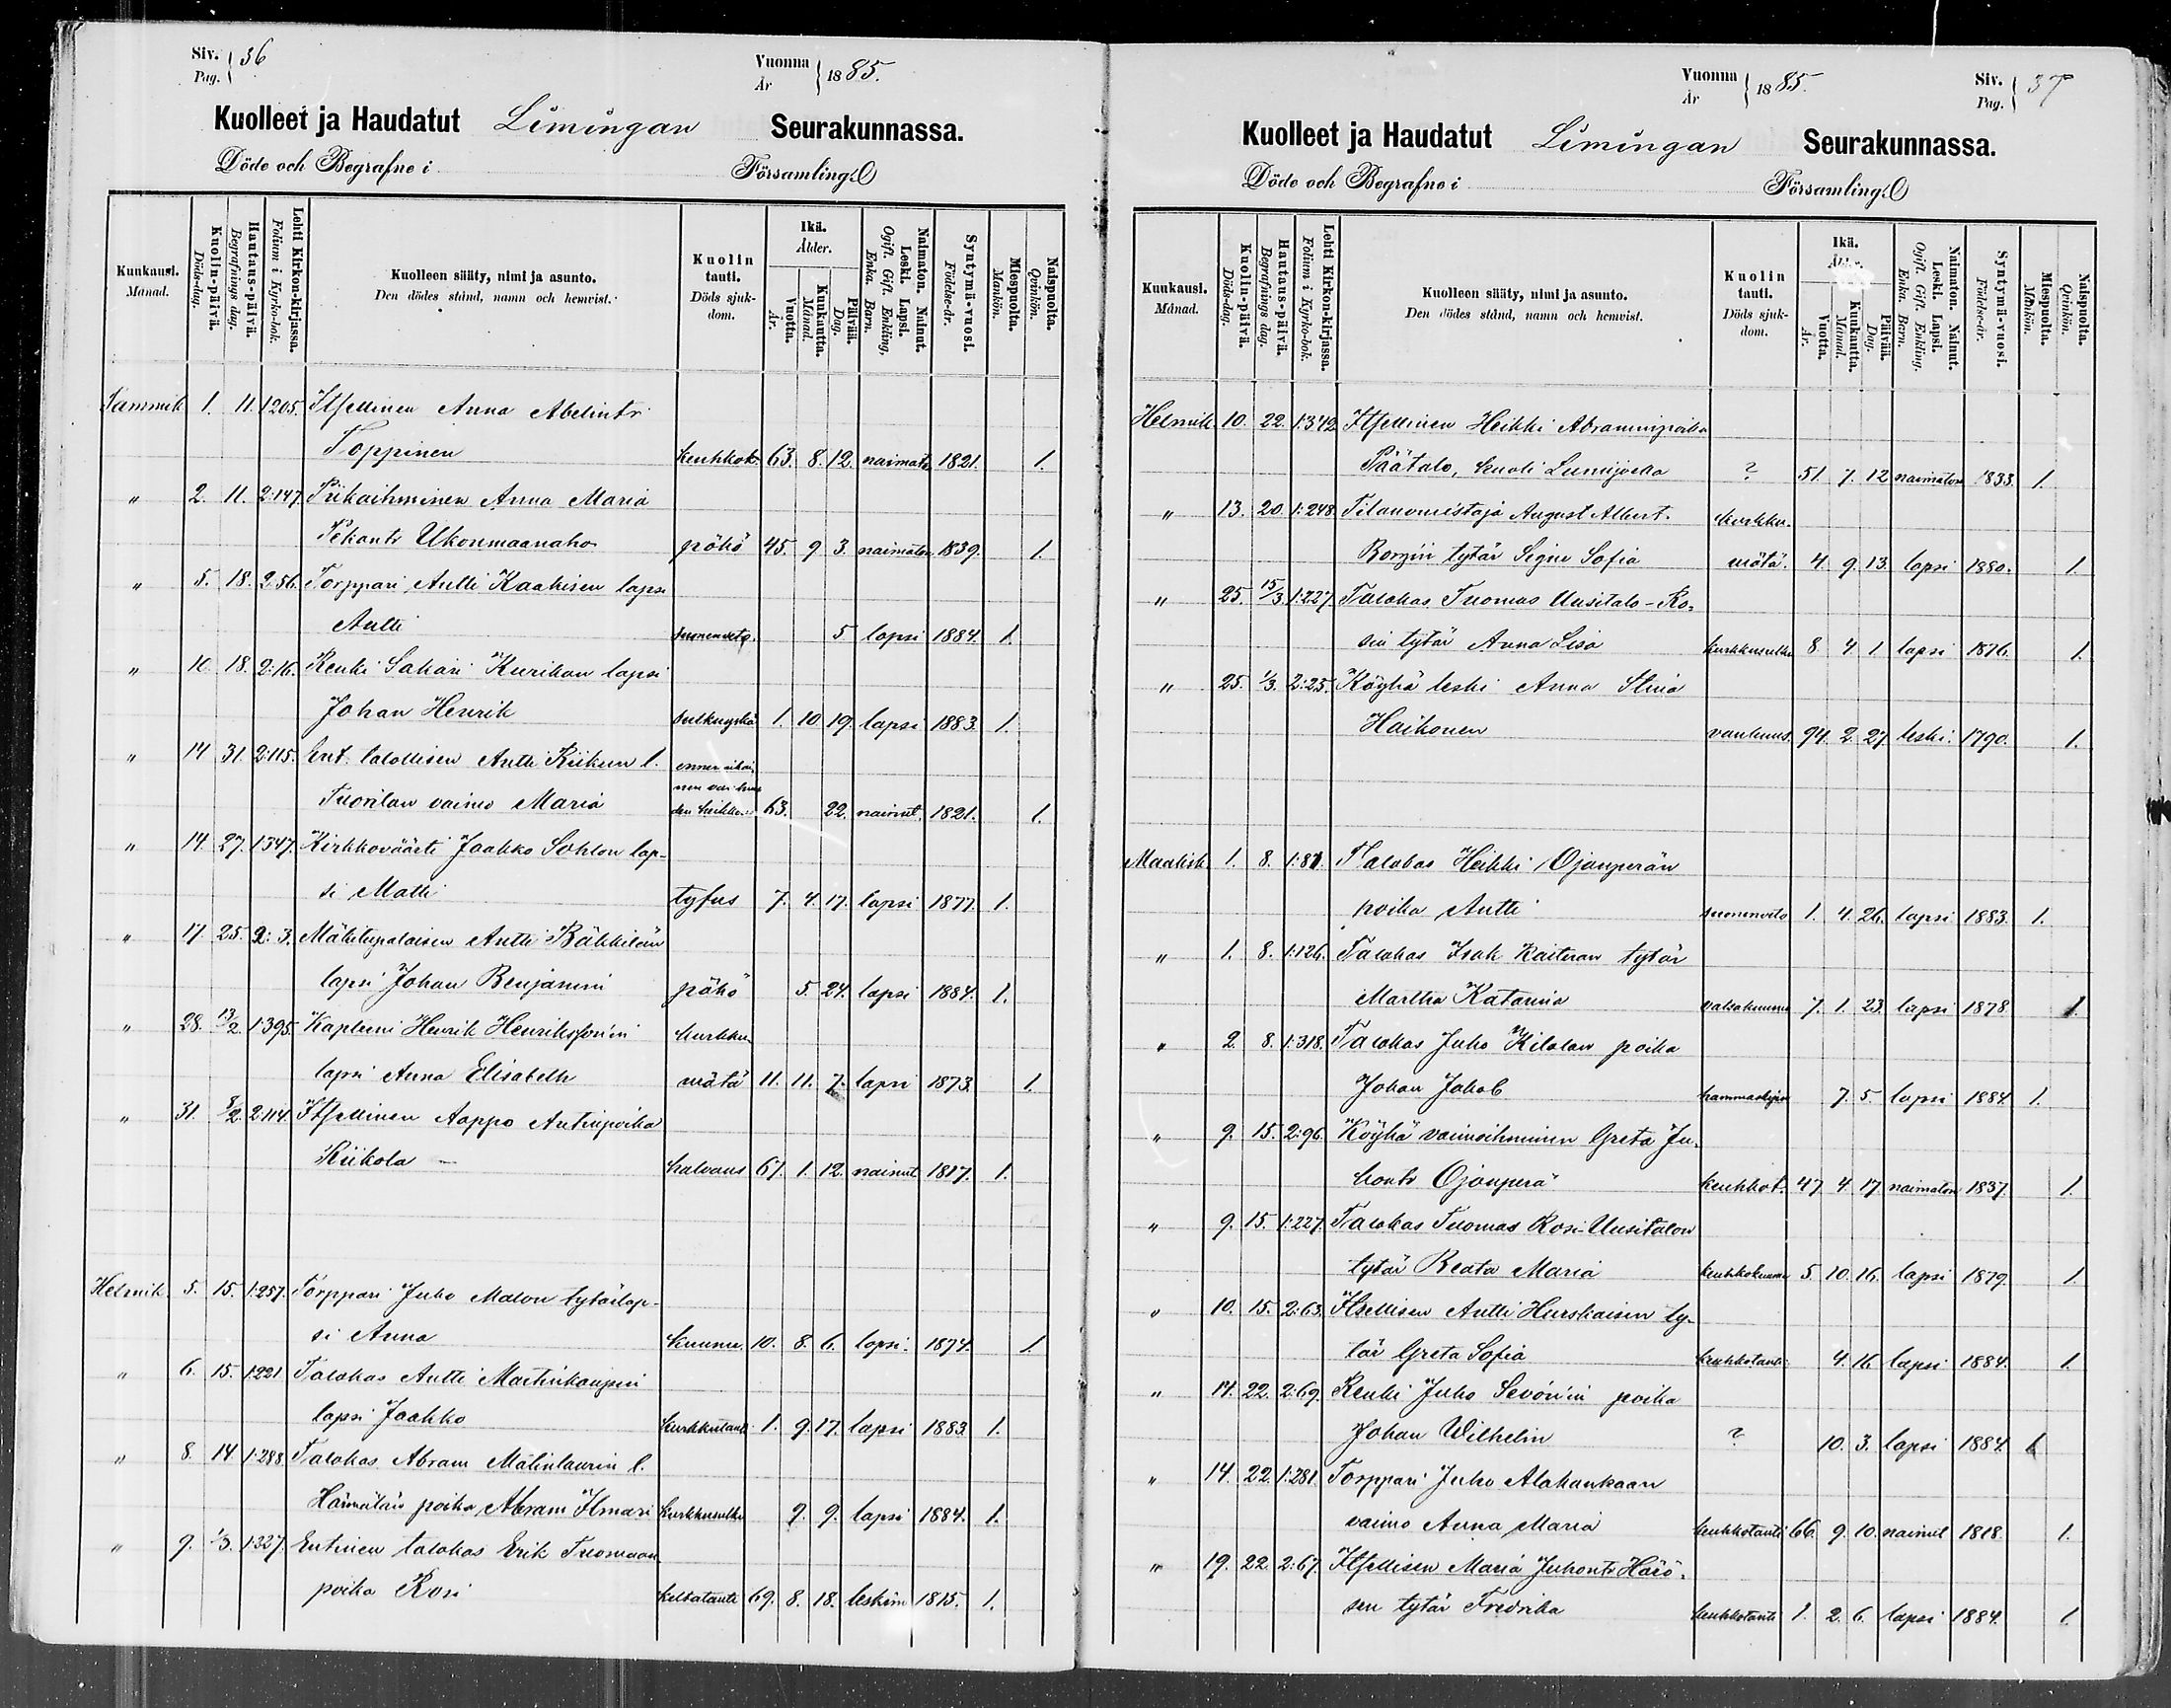 Siv. Pag. 36
Vuonna År 1885.
Kuolleet ja Haudatut Limingan Seurakunnassa.
Döde och Begrafne i Församling
Kuukausi. Månad.
Kuolin-päivä. Döds-dag.
Hautaus-päivä. Begrafnings dag.
Lehti Kirkon-kirjassa. Folium i Kyrko-bok.
Kuolleen sääty, nimi ja asunto.
Den dödes stånd, namn och hemvist.
Kuolin tauti. Döds sjukdom.
Ikä. Ålder.
Vuotta. År.
Kuukautta. Månad.
Päivää. Dag.
Naimaton. Nainut. Leski. Lapsi. Ogift. Gift. Enkling, Enka. Barn.
Syntymä-vuosi. Födelse-år.
Miespuolta. Mankön.
Naispuolta. Qvinkön.
Tammik. 1. 11. 1205. Itsellinen Anna Abelintr
Toppinen keuhkok. 63. 8. 12. naimato. 1821. 1.
" 2. 11. 2:147. Piikaihminen Anna Maria
Pekantr Ukonmaanaho pöhö 45. 9 3. naimaton 1839. 1.
" 5. 18. 2:86. Torppari Antti Kaakisen lapsi
Antti suonenveto. 5 lapsi 1884. 1.
" 10. 18. 2:16. Renki Sakari Kurikan lapsi
Johan Henrik 1. 10 19. lapsi 1883. 1.
" 14 31. 2:115. Ent. talollisen Antti Riikun l.
Tuorilan vaimo Maria 63. 22. nainut. 1821. 1.
" 14. 27. 1347. Kirkkoväärti Jaakko Sohlon lap-
si Matti tyfus 7. 4. 17. lapsi 1877. 1.
" 17. 25. 2:3. Mäkitupalaisen Antti
lapsi Johan Benjamin pöhö 5. 24. lapsi 1884. 1.
" 28. 13/2. 1:395. Kapteeni Henrik Henriksson'in kurkku
lapsi Anna Elisabeth mätä 11. 11. 7. lapsi 1873. 1.
" 31. 8/2. 2114. Itsellinen Aappo Antinpoika
Riikola halvaus 67. 1. 12. nainut 1817. 1.
Helmik. 5. 15. 1:257. Torppari Juho Malon tytärlap-
si Anna kuume 10. 8. 6. lapsi. 1874. 1.
" 6. 15. 1221 Talokas Antti Martinkaupin
lapsi Jaakko kurkkutauti 1. 9. 17. lapsi 1883. 1.
" 8. 14 1:288 Talokas Abram Mälinlaurin l.
poika Abram Ilmari kurkkusulku 9. 9. lapsi 1884. 1.
" 9. 1/3. 1:227. Entinen talokas Erik Tuomaan
poika Rosi keltatauti 69. 8. 18. leskim 1815. 1.
Vuonna År 1885.
Siv. Pag. 37
Kuolleet ja Haudatut Limingan Seurakunnassa.
Döde och Begrafne i Församling
Kuukausi. Månad.
Kuolin-päivä. Döds-dag.
Hautaus-päivä. Begrafnings dag.
Lehti Kirkon-kirjassa. Folium i Kyrko-bok.
Kuolleen sääty, nimi ja asunto.
Den dödes stånd, namn och hemvist.
Kuolin tauti. Döds sjukdom.
Ikä.
Vuotta. År.
Kuukautta. Månad.
Päivää. Dag.
Naimaton. Nainut. Leski. Lapsi. Ogift. Gift. Enkling. Enka. Barn.
Syntymä-vuosi. Födelse-år.
Miespuolta. Mankön.
Naispuolta. Qvinkön.
Helmik. 10. 22. 1:342 Itsellinen Heikki Abraminpoika
Päätalo, kuoli Lumijoella ? 51. 7. 12 naimaton 1833. 1.
" 13. 20. 1:248. Tilanomistaja August Albert. kurkku.
tytär Signe Sofia mätä. 4. 9. 13. lapsi 1880. 1.
" 25. 15/3. 1:227. Talokas Tuomas Uusitalo-Ro-
sin tytär Anna Lisa kurkkusulku 8. 4 1 lapsi 1876. 1.
" 25. 1/3. 2:25. Köyhä leski Anna Stina
Haikonen vanhuus. 94. 2. 27. leski. 1790. 1.
Maalisk. 1. 8. 1:81. Talokas Heikki Ojanperän
poika Antti suonenveto 1. 4. 26. lapsi 1883. 1.
" 1. 8. 1:126. Talokas Isak Raiteran tytär
Martha Katarina 7. 1. 23. lapsi 1878 1.
" 2. 8. 1:318. Talokas Juho Kilolan poika
Johan Jakob 7. 5. lapsi 1884. 1.
" 9. 15. 2:96. Köyhä vaimoihminen Greta Ju-
hontr Ojanperä keuhkot. 47 4 17. naimaton 1837. 1.
" 9. 15. 1:227. Talokas Tuomas Rosi-Uusitalon
tytär Beata Maria keuhkokuume 5. 10. 16. lapsi 1879. 1.
" 10. 15. 2:63. Itsellisen Antti Hurskaisen ty-
tär Greta Sofia keuhkotauti 4. 16 lapsi 1884. 1.
" 14. 22. 2:69. Renki Juho Sevón'in poika
Johan Wilhelm ? 10. 3. lapsi 1884. 1
" 14. 22. 1:281. Torppari Juho Alahankaan
vaimo Anna Maria keuhkotauti 66. 9. 10. nainut 1818. 1.
" 19. 22. 2:67. Itsellisen Maria Juhontr Härö-
sen tytär Fredrika keuhkotauti 1. 2. 6. lapsi 1884. 1.